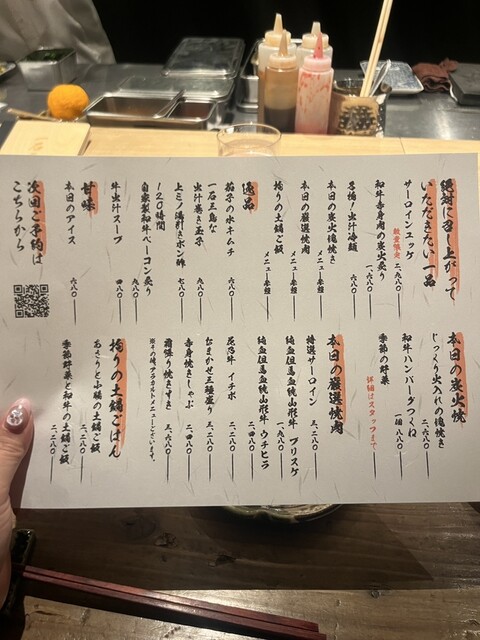 絶対に召し上がって
いただきたい一品
サーロインユッケ 数量限定 二、九八〇
和牛赤身肉の炭火炙り 一、六八〇
名物!出汁冷麺 六八〇
本日の炭火塊焼き メニュー参照
本日の厳選焼肉 メニュー参照
拘りの土鍋ご飯 メニュー参照
逸品
茄子の水キムチ 六八〇
一石三鳥な
出汁巻き玉子 九八〇
上ミノ湯引きポン酢 七八〇
120時間
自家製和牛ベーコン炙り 九八〇
牛出汁スープ 四八〇
甘味
本日のアイス 六八〇
次回ご予約は
こちらから
本日の炭火焼
じっくり火入れの塊焼き 二、六八〇
和牛ハンバーグつくね 一個 八八〇
季節の野菜 詳細はスタッフまで
本日の厳選焼肉
特選サーロイン 三、二八〇
純血但馬血統山形牛 ブリスケ 一、九八〇
純血但馬血統山形牛 ウチヒラ 二、四八〇
尾花牛 イチボ 二、二八〇
なまかせ三種盛り 三、二八〇
赤身焼きしゃぶ 二、四八〇
霜降り焼きすき 三、六八〇
※その他アラカルトメニューございます。
拘りの土鍋ごはん
あさりと小腸の土鍋ご飯 二、二八〇
季節野菜と和牛の土鍋ご飯 二、二八〇